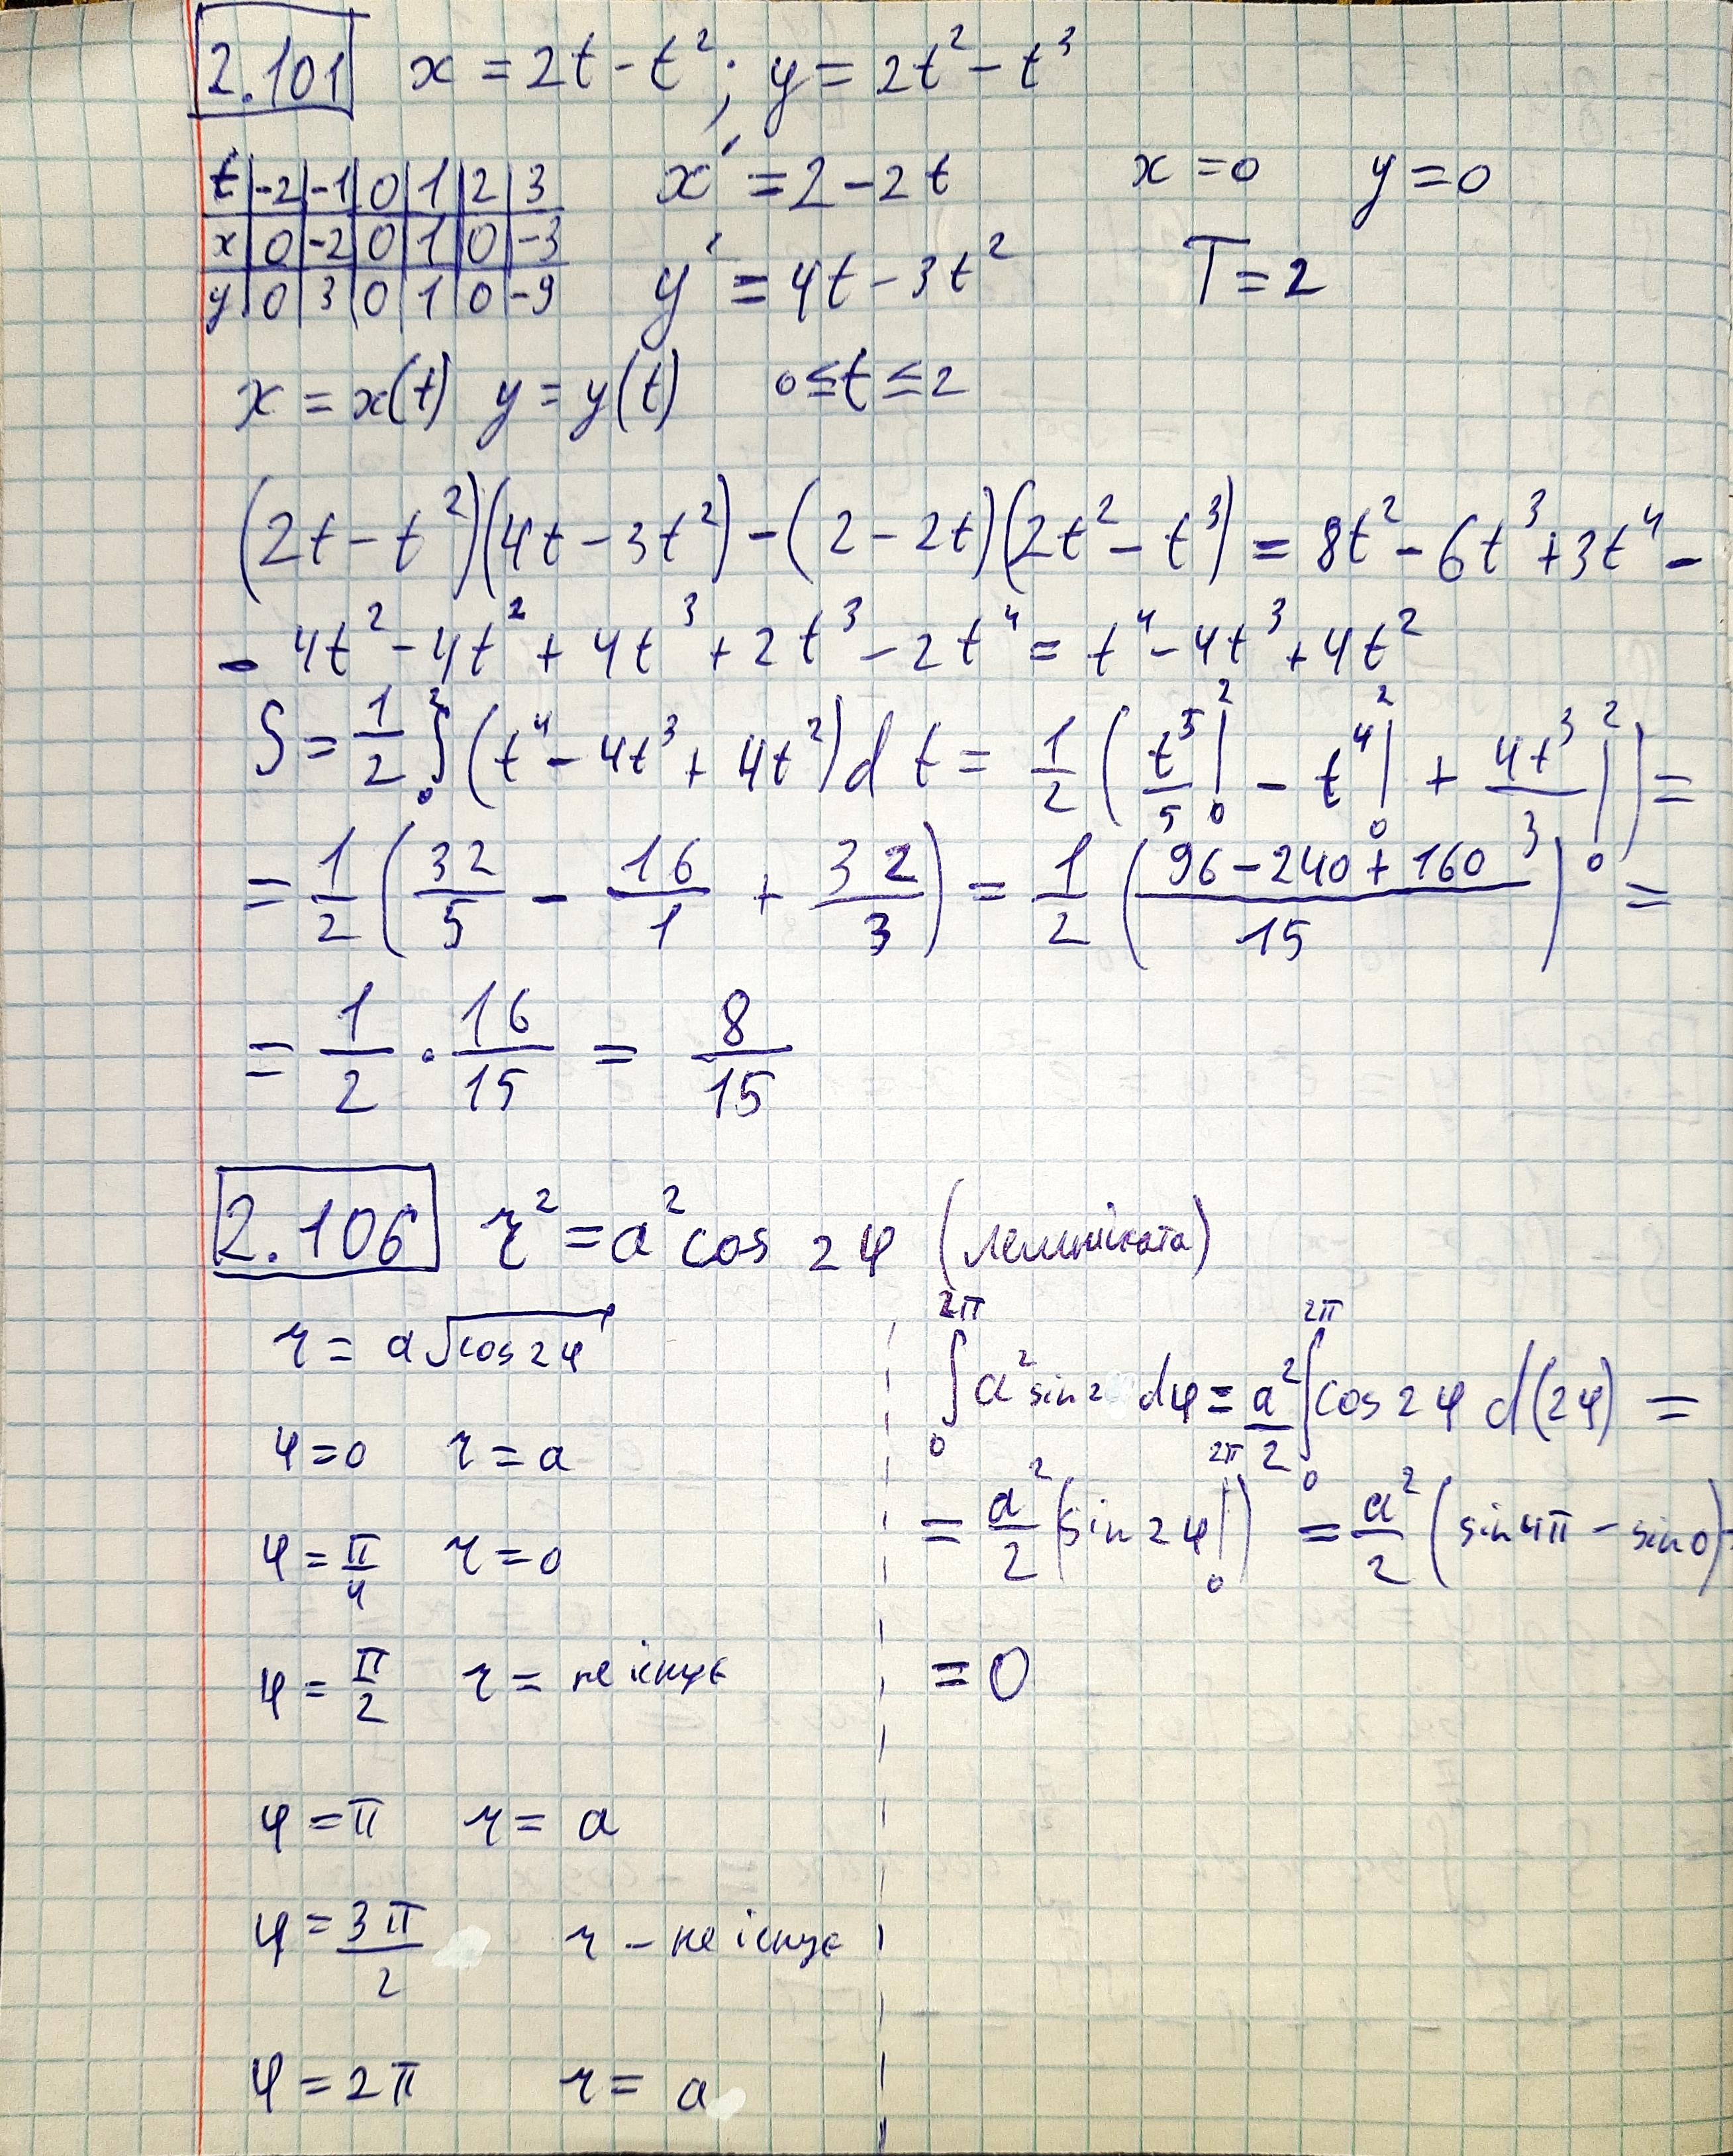 2.101 x = 2t - t²; y = 2t² - t³
t | -2 | -1 | 0 | 1 | 2 | 3
x | 0 | -2 | 0 | 1 | 0 | -3
y | 0 | 3 | 0 | 1 | 0 | -9
x' = 2 - 2t x = 0 y = 0
y' = 4t - 3t² T = 2
x = x(t) y = y(t) 0 ≤ t ≤ 2
(2t - t²)(4t - 3t²) - (2 - 2t)(2t² - t³) = 8t² - 6t³ + 3t⁴ -
- 4t² - 4t² + 4t³ + 2t³ - 2t⁴ = t⁴ - 4t³ + 4t²
S = 1/2 ∫₀² (t⁴ - 4t³ + 4t²) dt = 1/2 (t⁵/5 |₀² - t⁴ |₀² + 4t³/3 |₀²) =
= 1/2 (32/5 - 16/1 + 32/3) = 1/2 ((96 - 240 + 160)/15) =
= 1/2 · 16/15 = 8/15
2.106 r² = a² cos 2φ (лемніската)
r = a√cos 2φ
φ = 0 r = a
φ = π/4 r = 0
φ = π/2 r = не існує
φ = π r = a
φ = 3π/2 r - не існує
φ = 2π r = a
∫₀^2π a² sin 2 dφ = a²/2 ∫₀^2π cos 2φ d(2φ) =
= a²/2 (sin 2φ |₀^2π) = a²/2 (sin 4π - sin 0) =
= 0